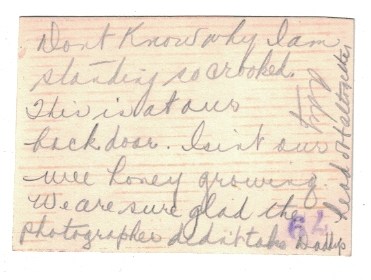 Dont Know why I am
standing so crooked.
This is at our
back door. Isint our
wee honey growing.
We are sure glad the
photographer didn't take Daddys
head off altogether
62